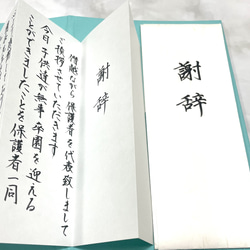 謝辞
僭越ながら保護者を代表致しまして
ご挨拶させていただきます
今日子供達が無事卒園を迎える
ことができましたことを保護者一同
謝辞